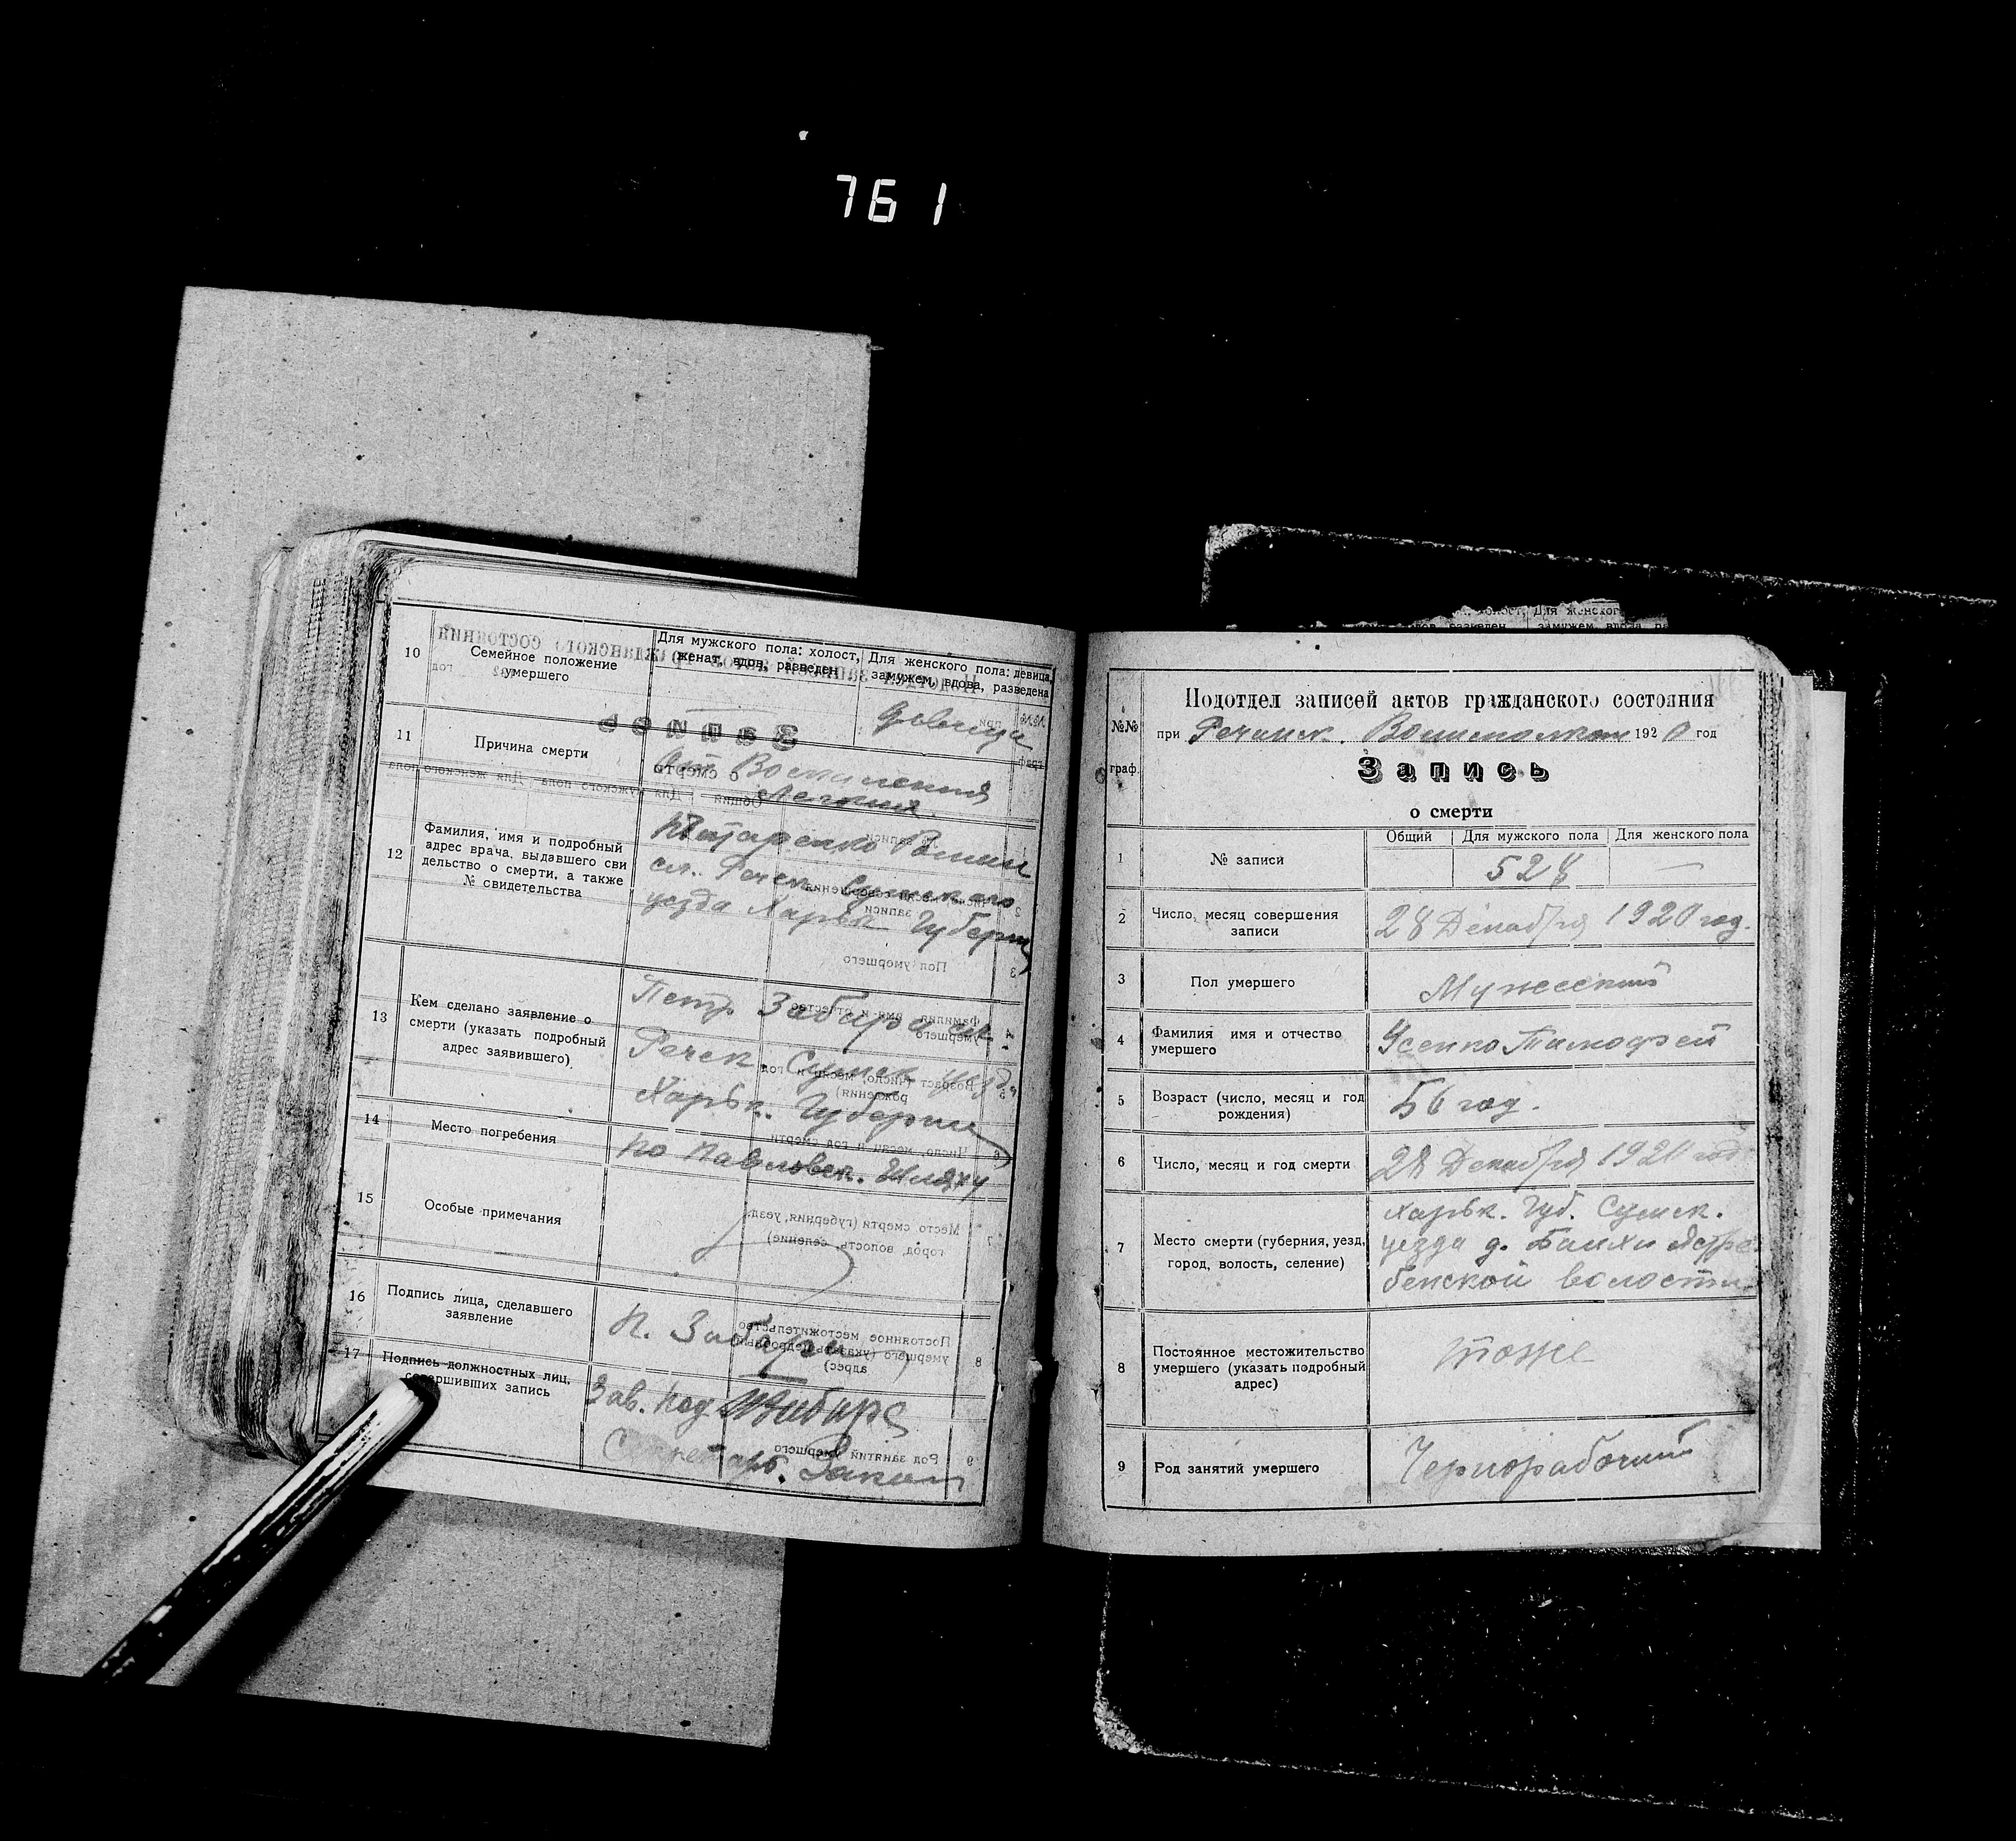 761
10
Семейное положение
умершего
Для мужского пола: холост,
женат, вдов, разведен
Для женского пола: девица,
замужем, вдова, разведена
девица
11
Причина смерти
От Воспиления
Легких
12
Фамилия, имя и подробный
адрес врача, выдавшего сви
дельство о смерти, а также
№ свидетельства
Роман
сл. Речк. Сумского
уезда Харьк. Губерни
13
Кем сделано заявление о
смерти (указать подробный
адрес заявившего).
Петр Забара
Речск. Сумск. уезд.
Харьк. Губерни
14
Место погребения
по Павловск. Шляху
15
Особые примечания
16
Подпись лица, сделавшего
заявление
П. Забара
17
Подпись должностных лиц,
совершивших запись
Зав. Под.
Секретарь.
№№
граф.
Подотдел записей актов гражданского состояния
при Речанск. Волисполком 1920 год
Запись
о смерти
1
№ записи
Общий
Для мужского пола
Для женского пола
528
—
2
Число, месяц совершения
записи
28 Декабря 1920 год.
3
Пол умершего
Мужеский
4
Фамилия имя и отчество
умершего
Усенко Тимофей
5
Возраст (число, месяц и год
рождения)
56 год.
6
Число, месяц и год смерти
28 Декабря 1920 год
7
Место смерти (губерния, уезд,
город, волость, селение)
Харьк. Губ. Сумск.
уезда д. Ястре
бенской волости
8
Постоянное местожительство
умершего (указать подробный
адрес)
тоже
9
Род занятий умершего
Чернорабочий